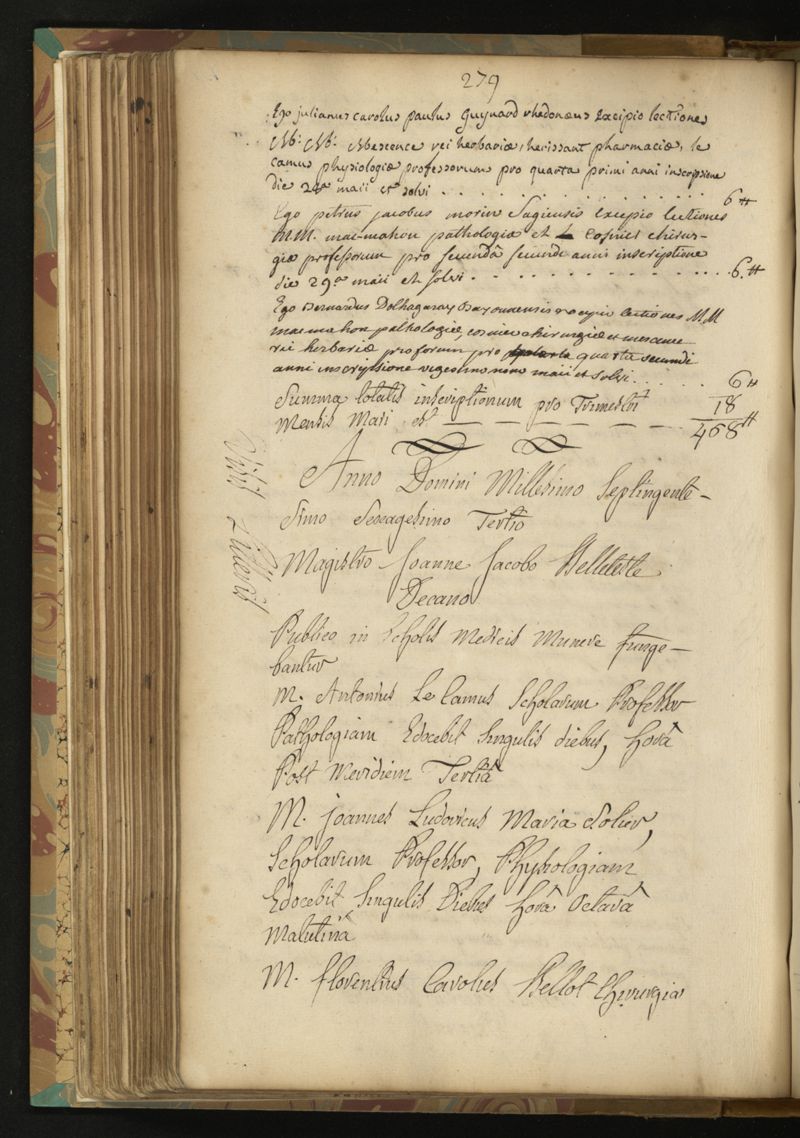 279
Ego julianus carolus paulus Guynard rhedonæus Excipio lectiones
escence rei herbariæ, herissant pharmaciæ, le
camus physiologiæ professorum pro quarta primi anni inscriptione
die 24a maii et solvi . . . . . . . . . . . . 6 ₶
Ego petrus jacobus morin Sagiensis Excipio lectiones
M.M. mac-mahon pathologiæ et cosnier chirur-
giæ professorum pro secundâ secundi anni inscriptione
die 29a maii et solvi . . . . . . . . . . . . 6. ₶
Ego Bernardus Dolhagaray Bayonaensis excipio lectiones M M
mac mahon pathologiæ, cosnier chirurgiæ et
rei herbariæ proforum pro quarta secundi
anni inscriptione vigesimo nono maii et solvi . . . . 6 ₶
Summa totalis inscriptionum pro Trimestri 18
Mensis Maii est — — — — — — 468 ₶
Anno Domini Millesimo Septingente-
simo Sexagesimo Tertio
Magistro Joanne Jacobo Belleteste
Decano
Publico in Scholis Medicis Munere funge-
bantur
M. Antonius Le Camus Scholarum Professor
Pathologiam Edocebit Singulis diebus, horâ
Post Meridiem Tertiâ
M. joannes Ludovicus Maria Solier,
Scholarum Professor, Physiologiam
Edocebit Singulis Diebus horâ Octavâ
Matutinâ
M. florentius Carolus Bellot Chirurgiæ